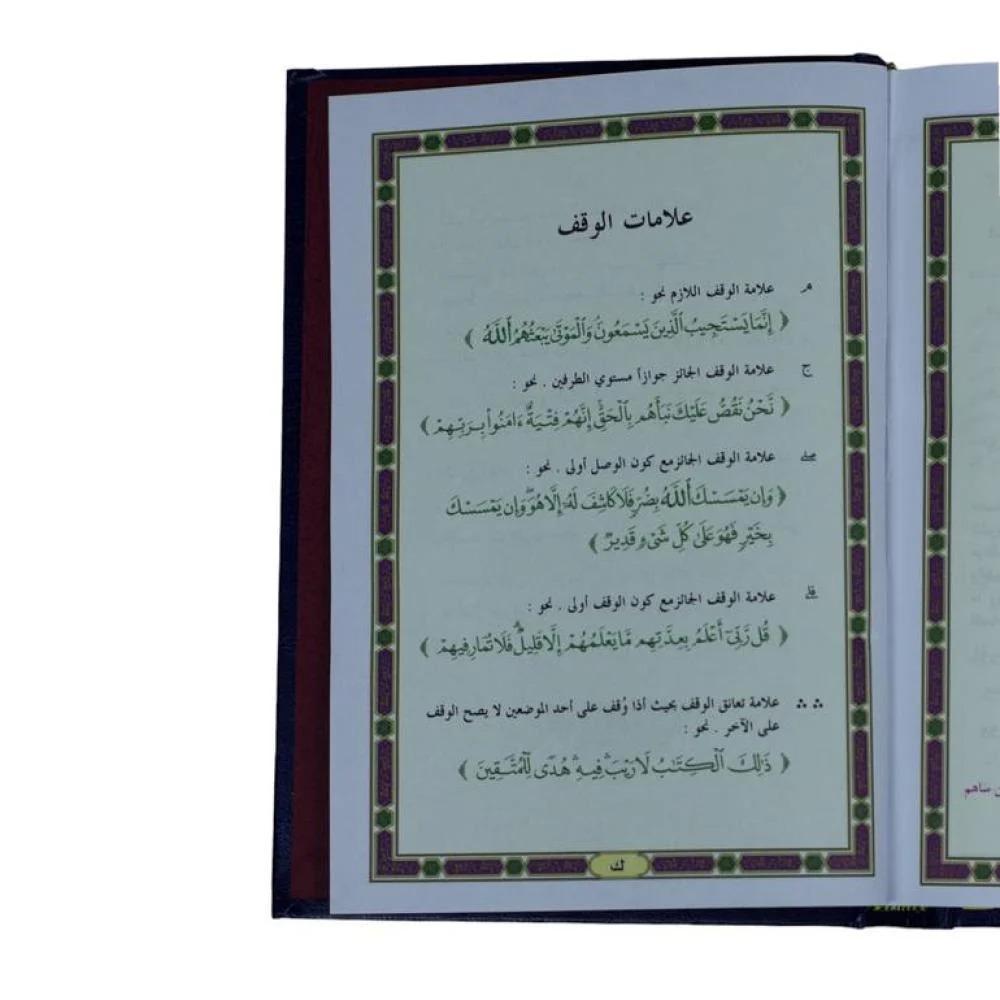 علامات الوقف
مـ علامة الوقف اللازم نحو :
﴿ إِنَّمَا يَسْتَجِيبُ ٱلَّذِينَ يَسْمَعُونَۘ وَٱلْمَوْتَىٰ يَبْعَثُهُمُ ٱللَّهُ ﴾
ج علامة الوقف الجائز جوازاً مستوي الطرفين . نحو :
﴿ نَّحْنُ نَقُصُّ عَلَيْكَ نَبَأَهُم بِٱلْحَقِّۚ إِنَّهُمْ فِتْيَةٌ ءَامَنُوا۟ بِرَبِّهِمْ ﴾
صلے علامة الوقف الجائز مع كون الوصل أولى . نحو :
﴿ وَإِن يَمْسَسْكَ ٱللَّهُ بِضُرٍّ فَلَا كَاشِفَ لَهُۥٓ إِلَّا هُوَۖ وَإِن يَمْسَسْكَ
بِخَيْرٍ فَهُوَ عَلَىٰ كُلِّ شَىْءٍ قَدِيرٌ ﴾
قلے علامة الوقف الجائز مع كون الوقف أولى . نحو :
﴿ قُل رَّبِّىٓ أَعْلَمُ بِعِدَّتِهِم مَّا يَعْلَمُهُمْ إِلَّا قَلِيلٌۗ فَلَا تُمَارِ فِيهِمْ ﴾
∴ ∴ علامة تعانق الوقف بحيث أذا وُقف على أحد الموضعين لا يصح الوقف
على الآخر . نحو :
﴿ ذَٰلِكَ ٱلْكِتَٰبُ لَا رَيْبَۛ فِيهِۛ هُدًى لِّلْمُتَّقِينَ ﴾
ك